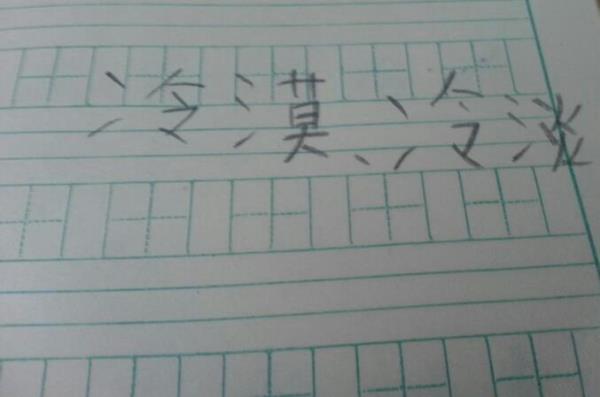 冷漠、冷淡